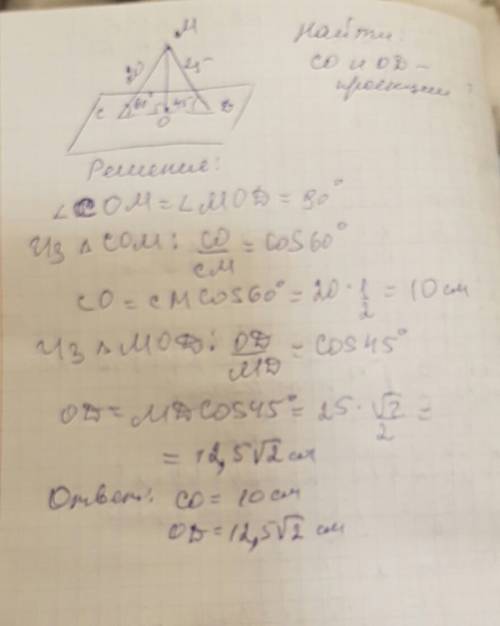 M
20 25
60° 45°
C O D
Найти:
CO и OD —
проекции
Решение:
∠COM = ∠MOD = 90°
Из △ COM: CO/CM = cos60°
CO = CM cos60° = 20 · 1/2 = 10 см
Из △ MOD: OD/MD = cos45°
OD = MD cos45° = 25 · √2/2 =
= 12,5√2 см
Ответ: CO = 10 см
OD = 12,5√2 см